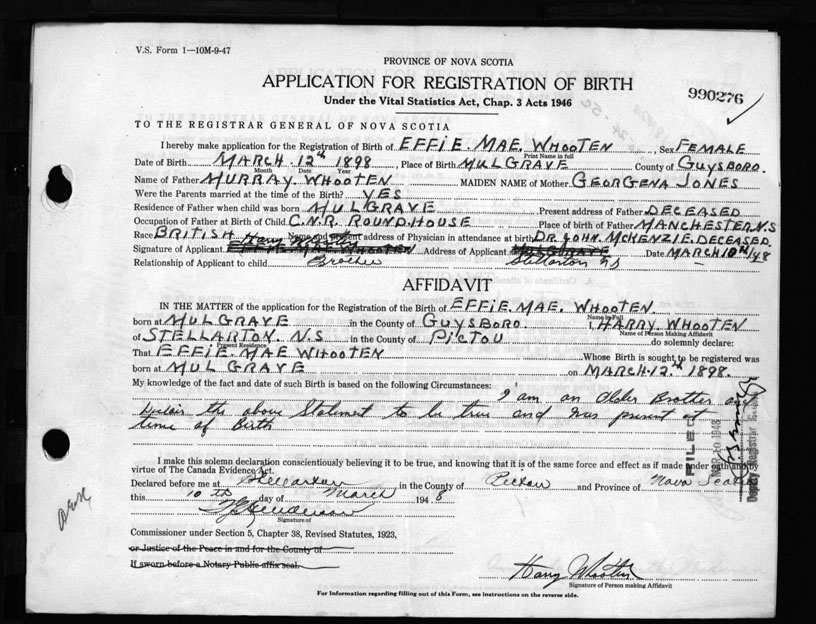 V.S. Form 1—10M-9-47
PROVINCE OF NOVA SCOTIA
APPLICATION FOR REGISTRATION OF BIRTH
Under the Vital Statistics Act, Chap. 3 Acts 1946
990276
TO THE REGISTRAR GENERAL OF NOVA SCOTIA
I hereby make application for the Registration of Birth of EFFIE. MAE. WHOOTEN, Sex FEMALE
Print Name in full
Date of Birth MARCH. 12th 1898, Place of Birth MULGRAVE County of GUYSBORO.
Month Date Year
Name of Father MURRAY. WHOOTEN MAIDEN NAME of Mother GEORGENA JONES
Were the Parents married at the time of the Birth? YES
Residence of Father when child was born MULGRAVE Present address of Father DECEASED
Occupation of Father at Birth of Child C.N.R. ROUNDHOUSE Place of birth of Father MANCHESTER N.S
Race BRITISH Name and present address of Physician in attendance at birth DR. JOHN. MCKENZIE. DECEASED.
Signature of Applicant Harry Whooten EFFIE MAE WHOOTEN Address of Applicant MULGRAVE Date MARCH 10th/48
Relationship of Applicant to child Brother Stellarton NS
AFFIDAVIT
IN THE MATTER of the application for the Registration of the Birth of EFFIE. MAE. WHOOTEN.
Name in Full
born at MULGRAVE in the County of GUYSBORO. I, HARRY. WHOOTEN
Name of Person Making Affidavit
of STELLARTON. N.S in the County of PICTOU do solemnly declare:
Present Residence
That EFFIE. MAE WHOOTEN Whose Birth is sought to be registered was
born at MULGRAVE on MARCH. 12th 1898.
My knowledge of the fact and date of such Birth is based on the following Circumstances:
I am an Older Brother and
the above Statement to be true and was present at
time of Birth
FILED
MAR 10 1948
Deputy Registrar
I make this solemn declaration conscientiously believing it to be true, and knowing that it is of the same force and effect as if made under oath and by
virtue of The Canada Evidence Act.
Declared before me at Stellarton in the County of Pictou and Province of Nova Scotia
this 10th day of March 1948
Signature of
Commissioner under Section 5, Chapter 38, Revised Statutes, 1923,
or Justice of the Peace in and for the County of
If sworn before a Notary Public affix seal.
Harry Whooten
Signature of Person making Affidavit
For Information regarding filling out of this Form, see instructions on the reverse side.